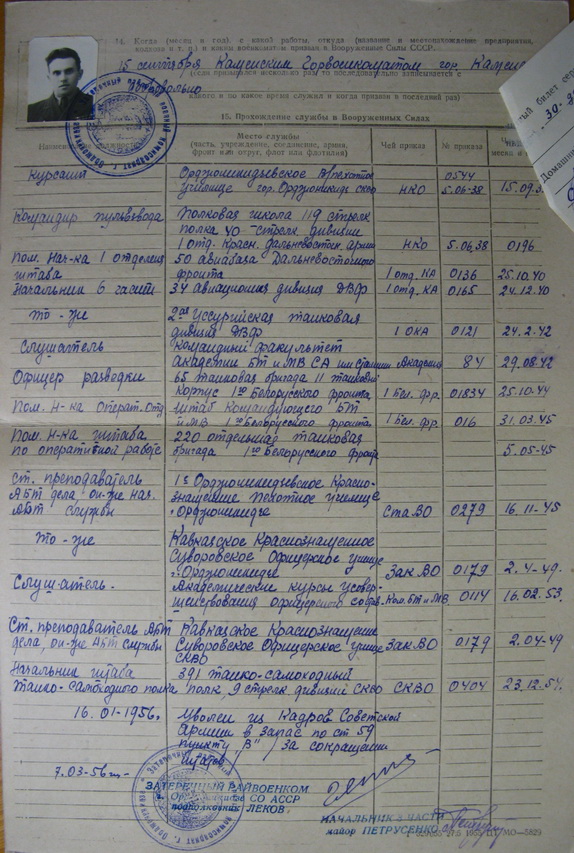 14. Когда (месяц и год), с какой работы, откуда (название и местонахождение предприятия,
колхоза и т. п.) и каким военкоматом призван в Вооруженные Силы СССР.
15 сентября Каменским Горвоенкоматом гор. Каменс
(если призывался несколько раз, то последовательно записывается с
добровольно
какого и по какое время служил и когда призван в последний раз)
15. Прохождение службы в Вооруженных Силах
Место службы
(часть, учреждение, соединение, армия, фронт или округ, флот или флотилия)
Чей приказ
№ приказа
Курсант
Орджоникидзевское В/пехотное
училище гор. Орджоникидзе СКВО
НКО
0544
5.06-38
15.09.3
Командир пульвзвода
Полковая школа 119 стрелк
полка 40 стрелк дивизии
1 отд. Красн. дальневосточн. армии
НКО
5.06.38
0196
Пом. Нач-ка 1 отделения
штаба
50 авиабаза Дальневосточного
фронта
1 отд. КА
0136
25.10.40
Начальник 6 части
34 авиационная дивизия ДВФ
1 отд. КА
0165
24.12.40
то-же
2ая Уссурийская танковая
дивизия ДВФ
1 ОКА
0121
24.2.42
Слушатель
Командный факультет
академии БТ и МВ СА им Сталина
Академия
84
29.08.42
Офицер разведки
65 танковая бригада 11 танковый
корпус 1го Белорусского фронта
1 Бел. фр.
01834
25.10.44
Пом. Н-ка Операт. отд
Штаб Командующего БТ
и МВ 1го Белорусского фронта
1 Бел. фр.
016
31.03.45
Пом. Н-ка штаба
по оперативной работе
220 отдельная танковая
бригада 1го Белорусского фронта
5.05-45
Ст. преподаватель
АБТ дела он-же нач.
АБТ службы
1е Орджоникидзевское Красно-
знаменное пехотное училище
г. Орджоникидзе
Ста ВО
0279
16.11-45
то-же
Кавказское Краснознаменное
Суворовское Офицерское училище
г. Орджоникидзе
Зак. ВО
0179
2.4-49.
Слушатель.
Академические курсы усовер-
шенствования офицерского состава
Ком. БТ и МВ
0114
16.02.53.
Ст. преподаватель АБТ
дела, он-же АБТ службы
Кавказское Краснознамен
Суворовское Офицерское училище
СКВО
Зак ВО
0179
2.04-49
Начальник штаба
Танко-самоходного полка
391 танко-самоходный
полк, 9 стрелк дивизии СКВО
СКВО
0404
23.12.54.
16.01-1956г.
Уволен из Кадров Советской
Армии в запас по ст 59
пункту "В" за сокращением
штатов
7.03-56г-
ЗАТЕРЕЧНЫЙ РАЙВОЕНКОМ
СО АССР
подполковник ЛЕКОВ
НАЧАЛЬНИК 3 ЧАСТИ
майор ПЕТРУСЕНКО